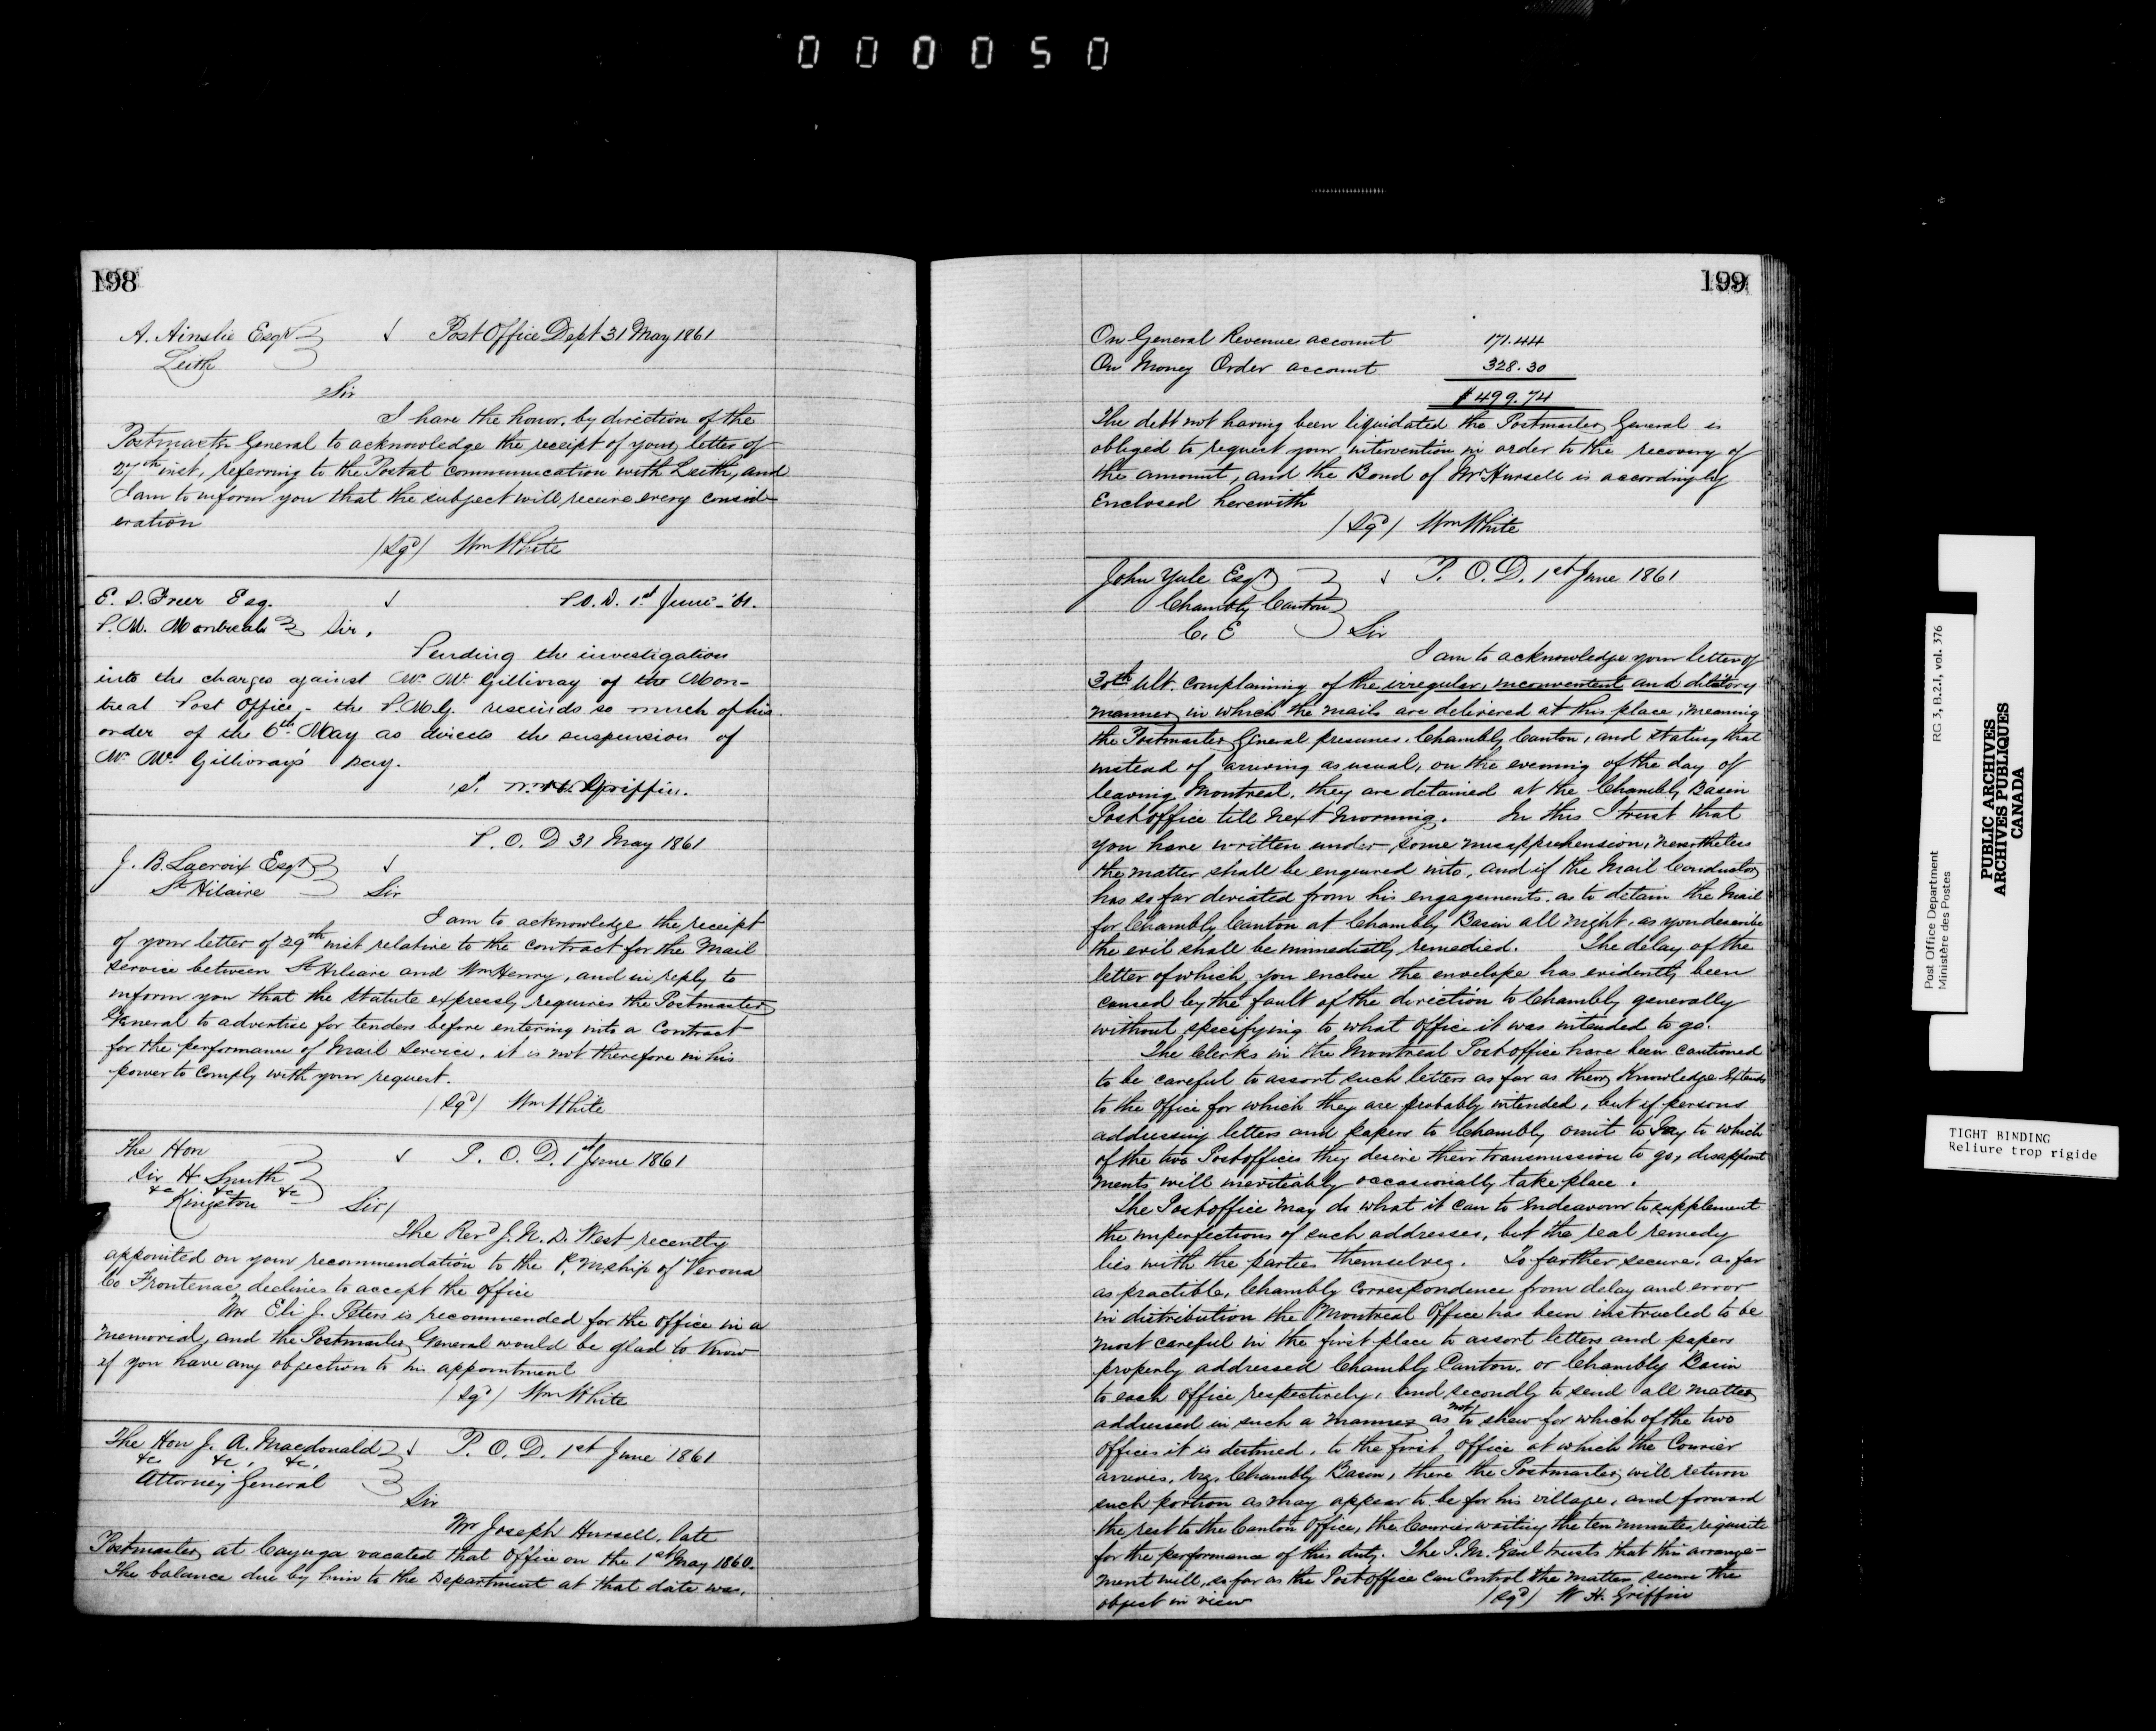 000050
198
A. Ainslie Esqr ✓ Post Office Dept 31 May 1861
Leith
Sir
I have the honor, by direction of the
Postmaster General to acknowledge the receipt of your letter of
27th inst, referring to the Postal Communication with Leith, and
I am to inform you that the subject will receive every consid-
eration
/Sgd/ Wm White
E. S. Freer Esq. ✓ P.O.D. 1st June - '61.
P.M. Montreal Sir,
Pending the investigation
into the charges against Mr. Mc Gillivray of the Mon-
treal Post Office, - the P.M.G. rescinds so much of his
order of the 6th May as directs the suspension of
Mr. Mc Gillivray's pay.
W. H. Griffin.
P. O. D 31 May 1861
J. B. Lacroix Esqr ✓
St Hilaire Sir
I am to acknowledge the receipt
of your letter of 29th inst relative to the contract for the Mail
service between St Hilaire and Wm Henry, and in reply to
inform you that the Statute expressly requires the Postmaster
General to advertise for tenders before entering into a Contract
for the performance of Mail Service, it is not therefore in his
power to comply with your request.
/Sgd/ Wm White
The Hon ✓ P. O. D. 1st June 1861
Sir H Smith
&c &c &c
Kingston Sir/
The Revd J. N. D. West recently
appointed on your recommendation to the P. Mship of Verona
Co Frontenac declines to accept the office
Mr Eli J. Peters is recommended for the office in a
memorial, and the Postmaster General would be glad to know
if you have any objection to his appointment
/Sgd/ Wm White
The Hon J. A. Macdonald ✓ P. O. D. 1st June 1861
&c &c, &c,
Attorney General
Sir
Mr Joseph Hursell, late
Postmaster at Cayuga vacated that Office on the 1st May 1860.
The balance due by him to the Department at that date was,
199
On General Revenue account 171.44
On Money Order account 328.30
$499.74
The debt not having been liquidated the Postmaster General is
obliged to request your intervention in order to the recovery of
the amount, and the Bond of Mr Hursell is accordingly
Enclosed herewith
/Sgd/ Wm White
John Yule Esqr ✓ P. O. D. 1st June 1861
Chambly Canton
C. E Sir
I am to acknowledge your letter of
30th Ult. complaining of the irregular, inconvenient and dilatory
manner in which the mails are delivered at this place, meaning
the Postmaster General presumes, Chambly Canton, and stating that
instead of arriving as usual, on the evening of the day of
leaving Montreal, they are detained at the Chambly Basin
Post office till next morning. In this I trust that
you have written under some misapprehension, nevertheless
the matter shall be enquired into, and if the Mail Conductor
has so far deviated from his engagements, as to detain the Mail
for Chambly Canton at Chambly Basin all night, as you describe
the evil shall be immediately remedied. The delay of the
letter of which you enclose the envelope has evidently been
caused by the fault of the direction to Chambly generally
without specifying to what office it was intended to go.
The Clerks in the Montreal Post office have been cautioned
to be careful to assort such letters as far as their Knowledge Extends
to the Office for which they are probably intended, but if persons
addressing letters and papers to Chambly omit to Say to which
of the two Post offices they desire their transmission to go, disappoint
ments will inevitably occasionally take place.
The Post office may do what it can to Endeavour to supplement
the imperfections of such addresses, but the real remedy
lies with the parties themselves. To farther secure, as far
as practible, Chambly Correspondence from delay and error
in distribution the Montreal Office has been instructed to be
most careful in the first place to assort letters and papers
properly addressed Chambly Canton, or Chambly Basin
to each office respectively, and secondly to send all matter
addressed in such a manner as not to shew for which of the two
Offices it is destined, to the first Office at which the Courier
arrives, viz. Chambly Basin, there the Postmaster will return
such portion as may appear to be for his village, and forward
the rest to the Canton Office, the Courier waiting the ten minutes requisite
for the performance of this duty. The P.M. Genl trusts that this arrange-
ment will, so far as the Post office can Control the matter, secure the
object in view /Sgd/ W. H. Griffin
Post Office Department RG 3, B.2.1, vol. 376
Ministère des Postes
PUBLIC ARCHIVES
ARCHIVES PUBLIQUES
CANADA
TIGHT BINDING
Reliure trop rigide